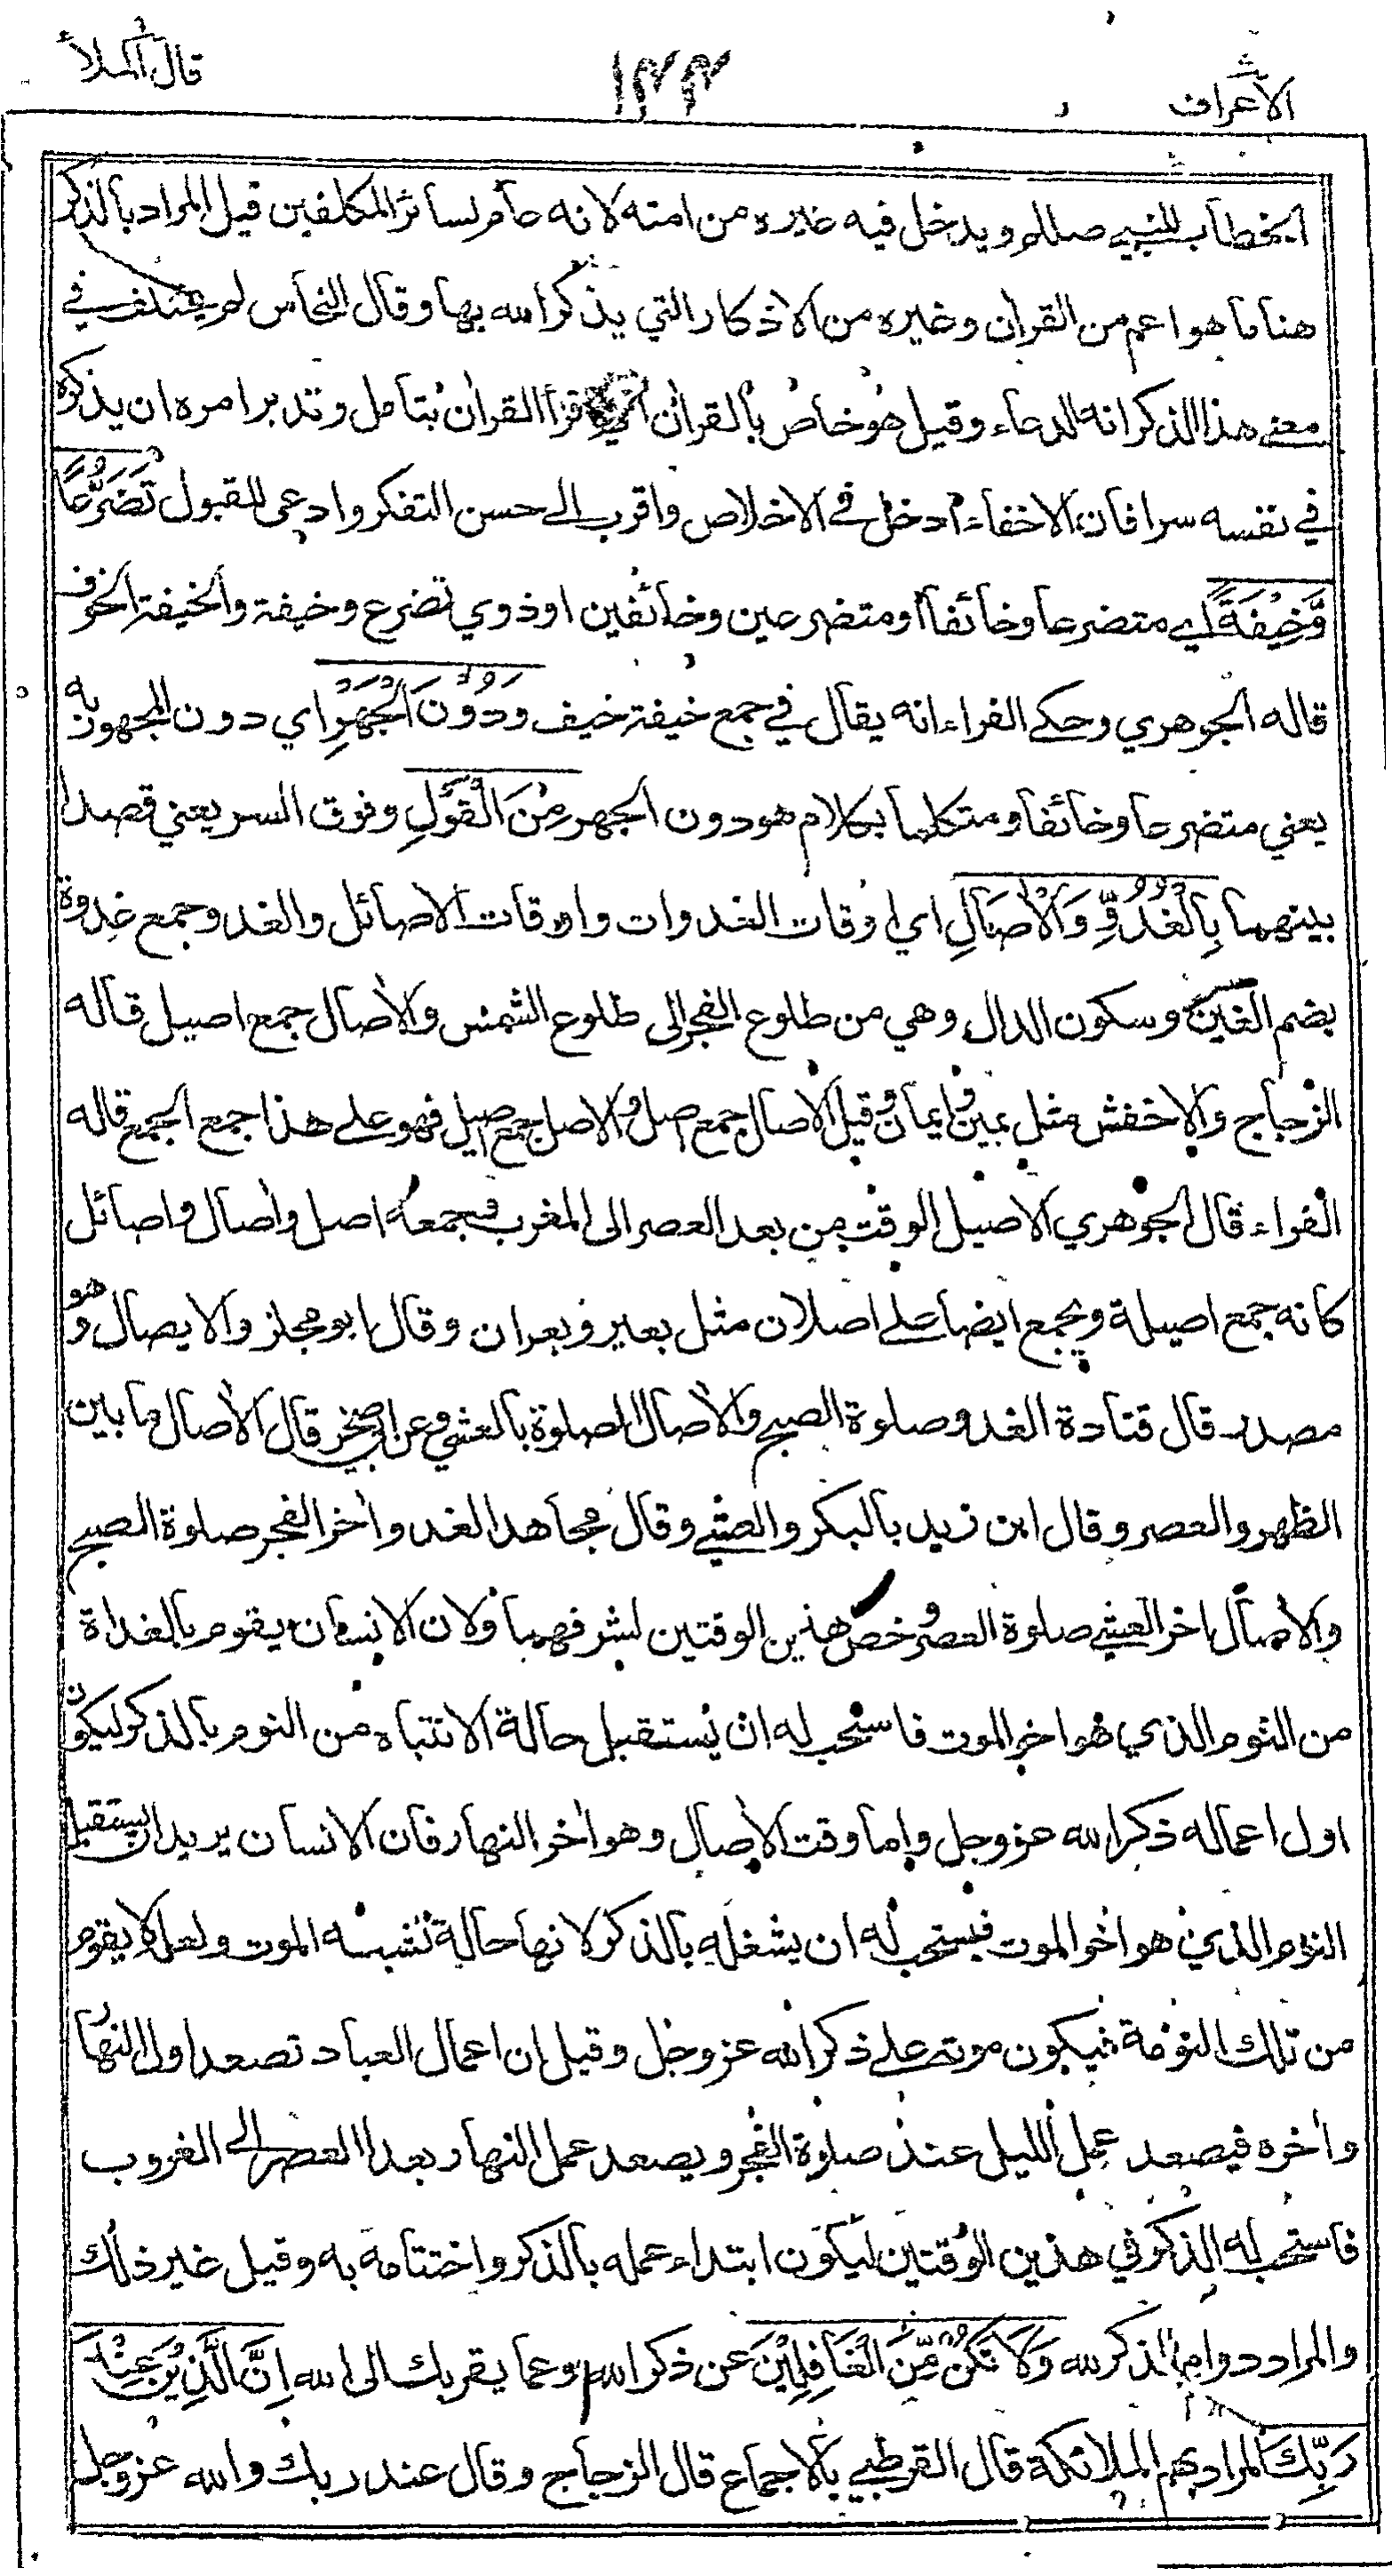 الأعراف
١٣٣
قال الملأ
الخطاب للنبي صللم ويدخل فيه غيره من امته لانه عام لسائر المكلفين قيل المراد بالذكر
هنا ما هو اعم من القرأن وغيره من الاذكار التي يذكر الله بها وقال النحاس لم يختلف في
معنى هذا الذكر انه الدعاء وقيل هو خاص بالقرأن اقرأ القرأن بتامل وتدبر امره ان يذكره
في نفسه سرا فان الاخفاء ادخل في الاخلاص واقرب الى حسن التفكر وادعى للقبول تَضَرُّعًا
وَّخِيفَةً اي متضرعا وخائفا او متضرعين وخائفين او ذوي تضرع وخيفة والخيفة الخوف
قاله الجوهري وحكى الفراء انه يقال في جمع خيفة خيف وَدُوْنَ الْجَهْرِ اي دون المجهور به
يعني متضرعا وخائفا ومتكلما بكلام هو دون الجهر مِنَ الْقَوْلِ وفوق السر يعني قصدا
بينهما بِالْغُدُوِّ وَالْأٰصَالِ اي اوقات الغدوات واوقات الاصائل والغدو جمع غدوة
بضم الغين وسكون الدال وهي من طلوع الفجر الى طلوع الشمس والأصال جمع اصيل قاله
الزجاج والاخفش مثل يمين وايمان وقيل الأصال جمع اصل والاصل جمع اصيل فهو على هذا جمع الجمع قاله
الفراء قال الجوهري الاصيل الوقت من بعد العصر الى المغرب وجمعه اصل وأصال واصائل
كانه جمع اصيلة ويجمع ايضا على اصلان مثل بعير وبعران وقال ابو مجلز والايصال وهو
مصدر قال قتادة الغدو صلوة الصبح والأصال الصلوة بالعشي وعن ابي صخر قال الأصال ما بين
الظهر والعصر وقال ابن زيد بالبكر والعشي وقال مجاهد الغدو أخر الفجر صلوة الصبح
والأصال اخر العشي صلوة العصر وخص هذين الوقتين لشرفهما ولان الانسان يقوم بالغداة
من النوم الذي هو اخو الموت فاستحب له ان يستقبل حالة الانتباه من النوم بالذكر ليكون
اول اعماله ذكر الله عز وجل واما وقت الأصال وهو أخر النهار فان الانسان يريد ان يستقبل
النوم الذي هو اخو الموت فيستحب له ان يشغله بالذكر لانها حالة تشبه الموت ولعله لا يقوم
من تلك النومة فيكون موته على ذكر الله عز وجل وقيل ان اعمال العباد تصعد اول النهار
وأخره فيصعد عمل الليل عند صلوة الفجر ويصعد عمل النهار بعد العصر الى الغروب
فاستحب له الذكر في هذين الوقتين ليكون ابتداء عمله بالذكر واختتامه به وقيل غير ذلك
والمراد دوام الذكر لله وَلَا تَكُنْ مِّنَ الْغَافِلِيْنَ عن ذكر الله وعما يقربك الى الله اِنَّ الَّذِيْنَ عِنْدَ
رَبِّكَ المراد بهم الملائكة قال القرطبي بالاجماع قال الزجاج وقال عند ربك والله عز وجل